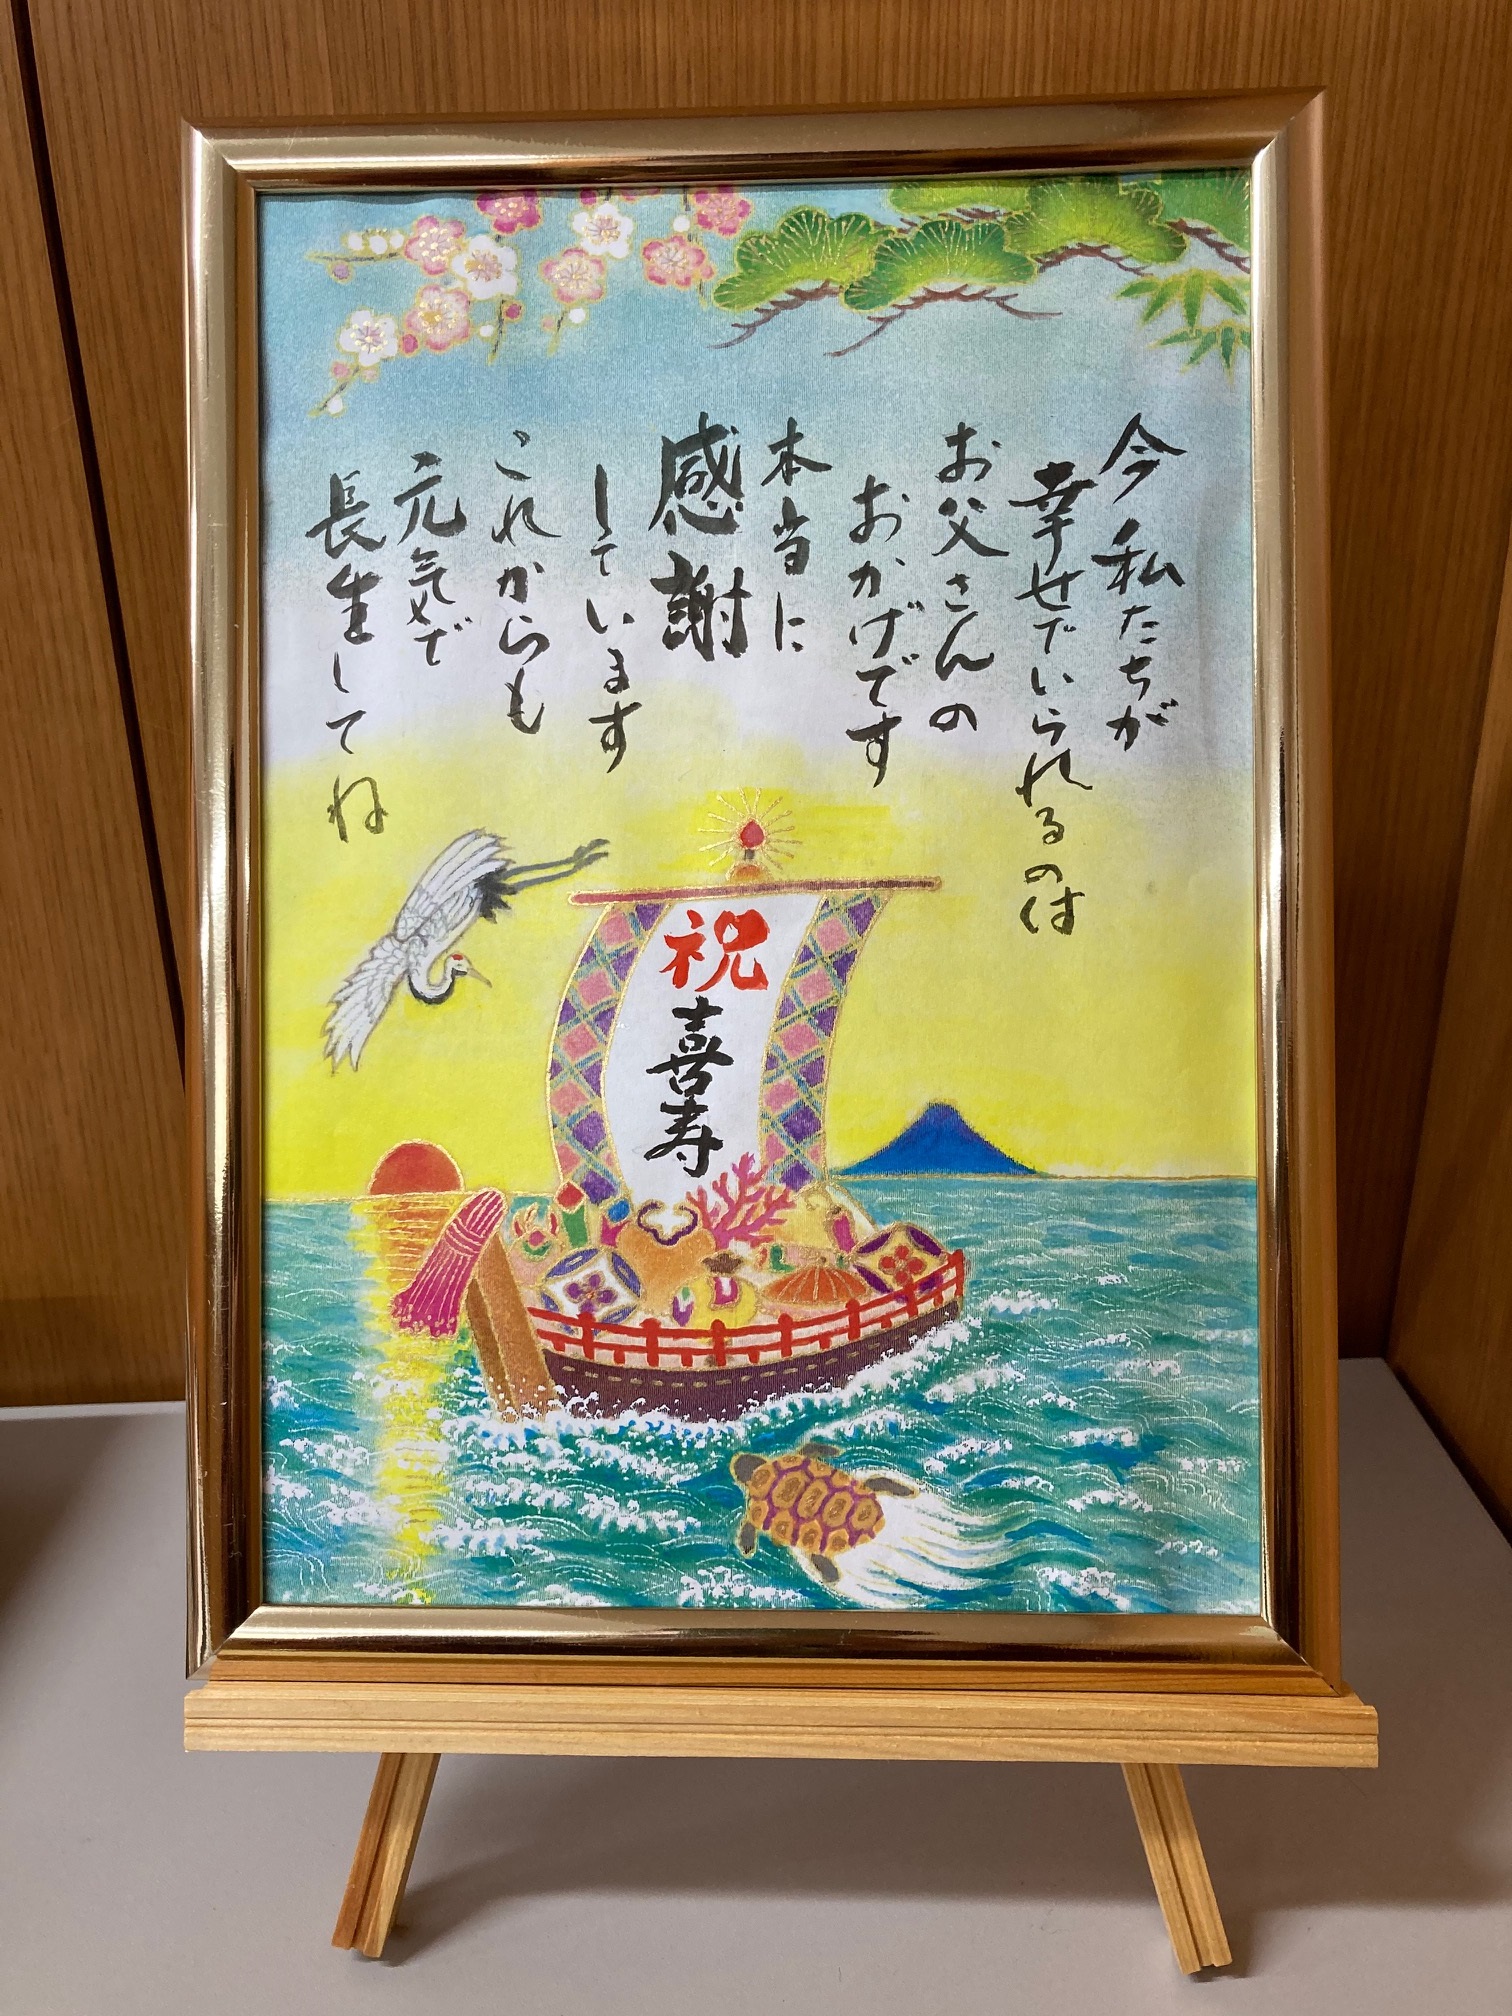 今私たちが
幸せでいられるのは
お父さんの
おかげです
本当に
感謝
しています
これからも
元気で
長生してね
祝
喜寿